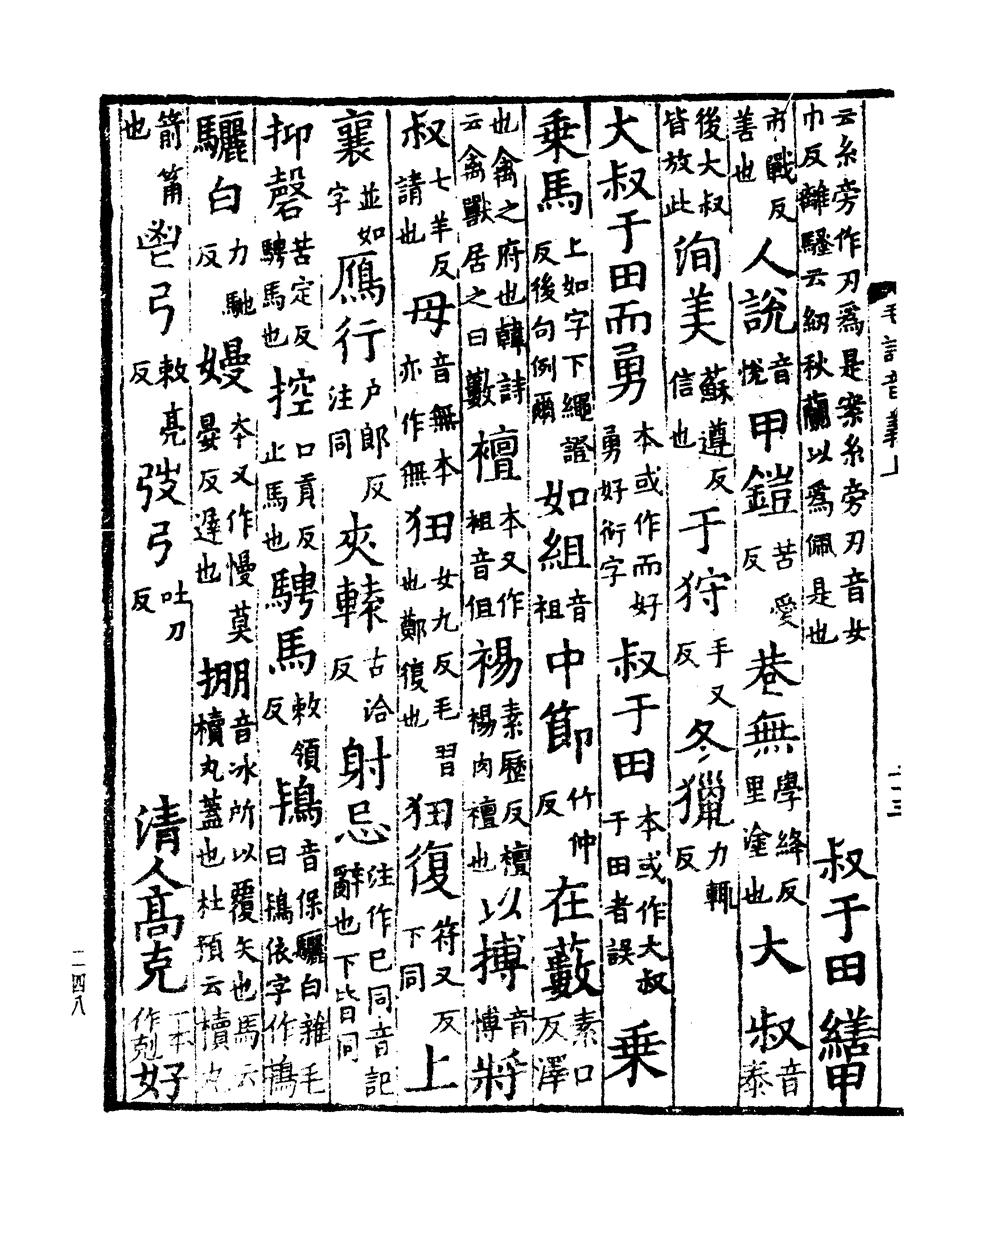 毛詩音義上
云糸旁作刃爲是案糸旁刃音女巾反離騷云紉秋蘭以爲佩是也 叔于田繕甲
市戰反善也人說音悅甲鎧苦愛反巷無學絳反里塗也大叔音泰
後大叔皆放此洵美蘇遵反信也于狩手又反冬獵力輒反
大叔于田而勇本或作而好勇好衍字叔于田本或作大叔于田者誤乗
乗馬上如字下繩證反後句例爾如組音祖中節竹仲反在藪素口反澤
也禽之府也韓詩云禽獸居之曰藪襢本又作袒音但裼素歷反襢裼肉襢也以搏音博將
叔七羊反請也毋音無本亦作無狃女九反毛習也鄭復也狃復符又反下同上
襄並如字鴈行户郎反注同夾轅古洽反射忌注作已同音記辭也下皆同
抑磬苦定反騁馬也控口貢反止馬也騁馬敕領反鴇音保驪白雜毛曰鴇依字作
驪白力馳反嫚本又作慢莫晏反遲也掤音冰所以覆矢也馬云櫝丸蓋也杜預云櫝丸
箭筩也鬯弓敕亮反弢弓吐刀反 清人高克一本作剋好
二四八